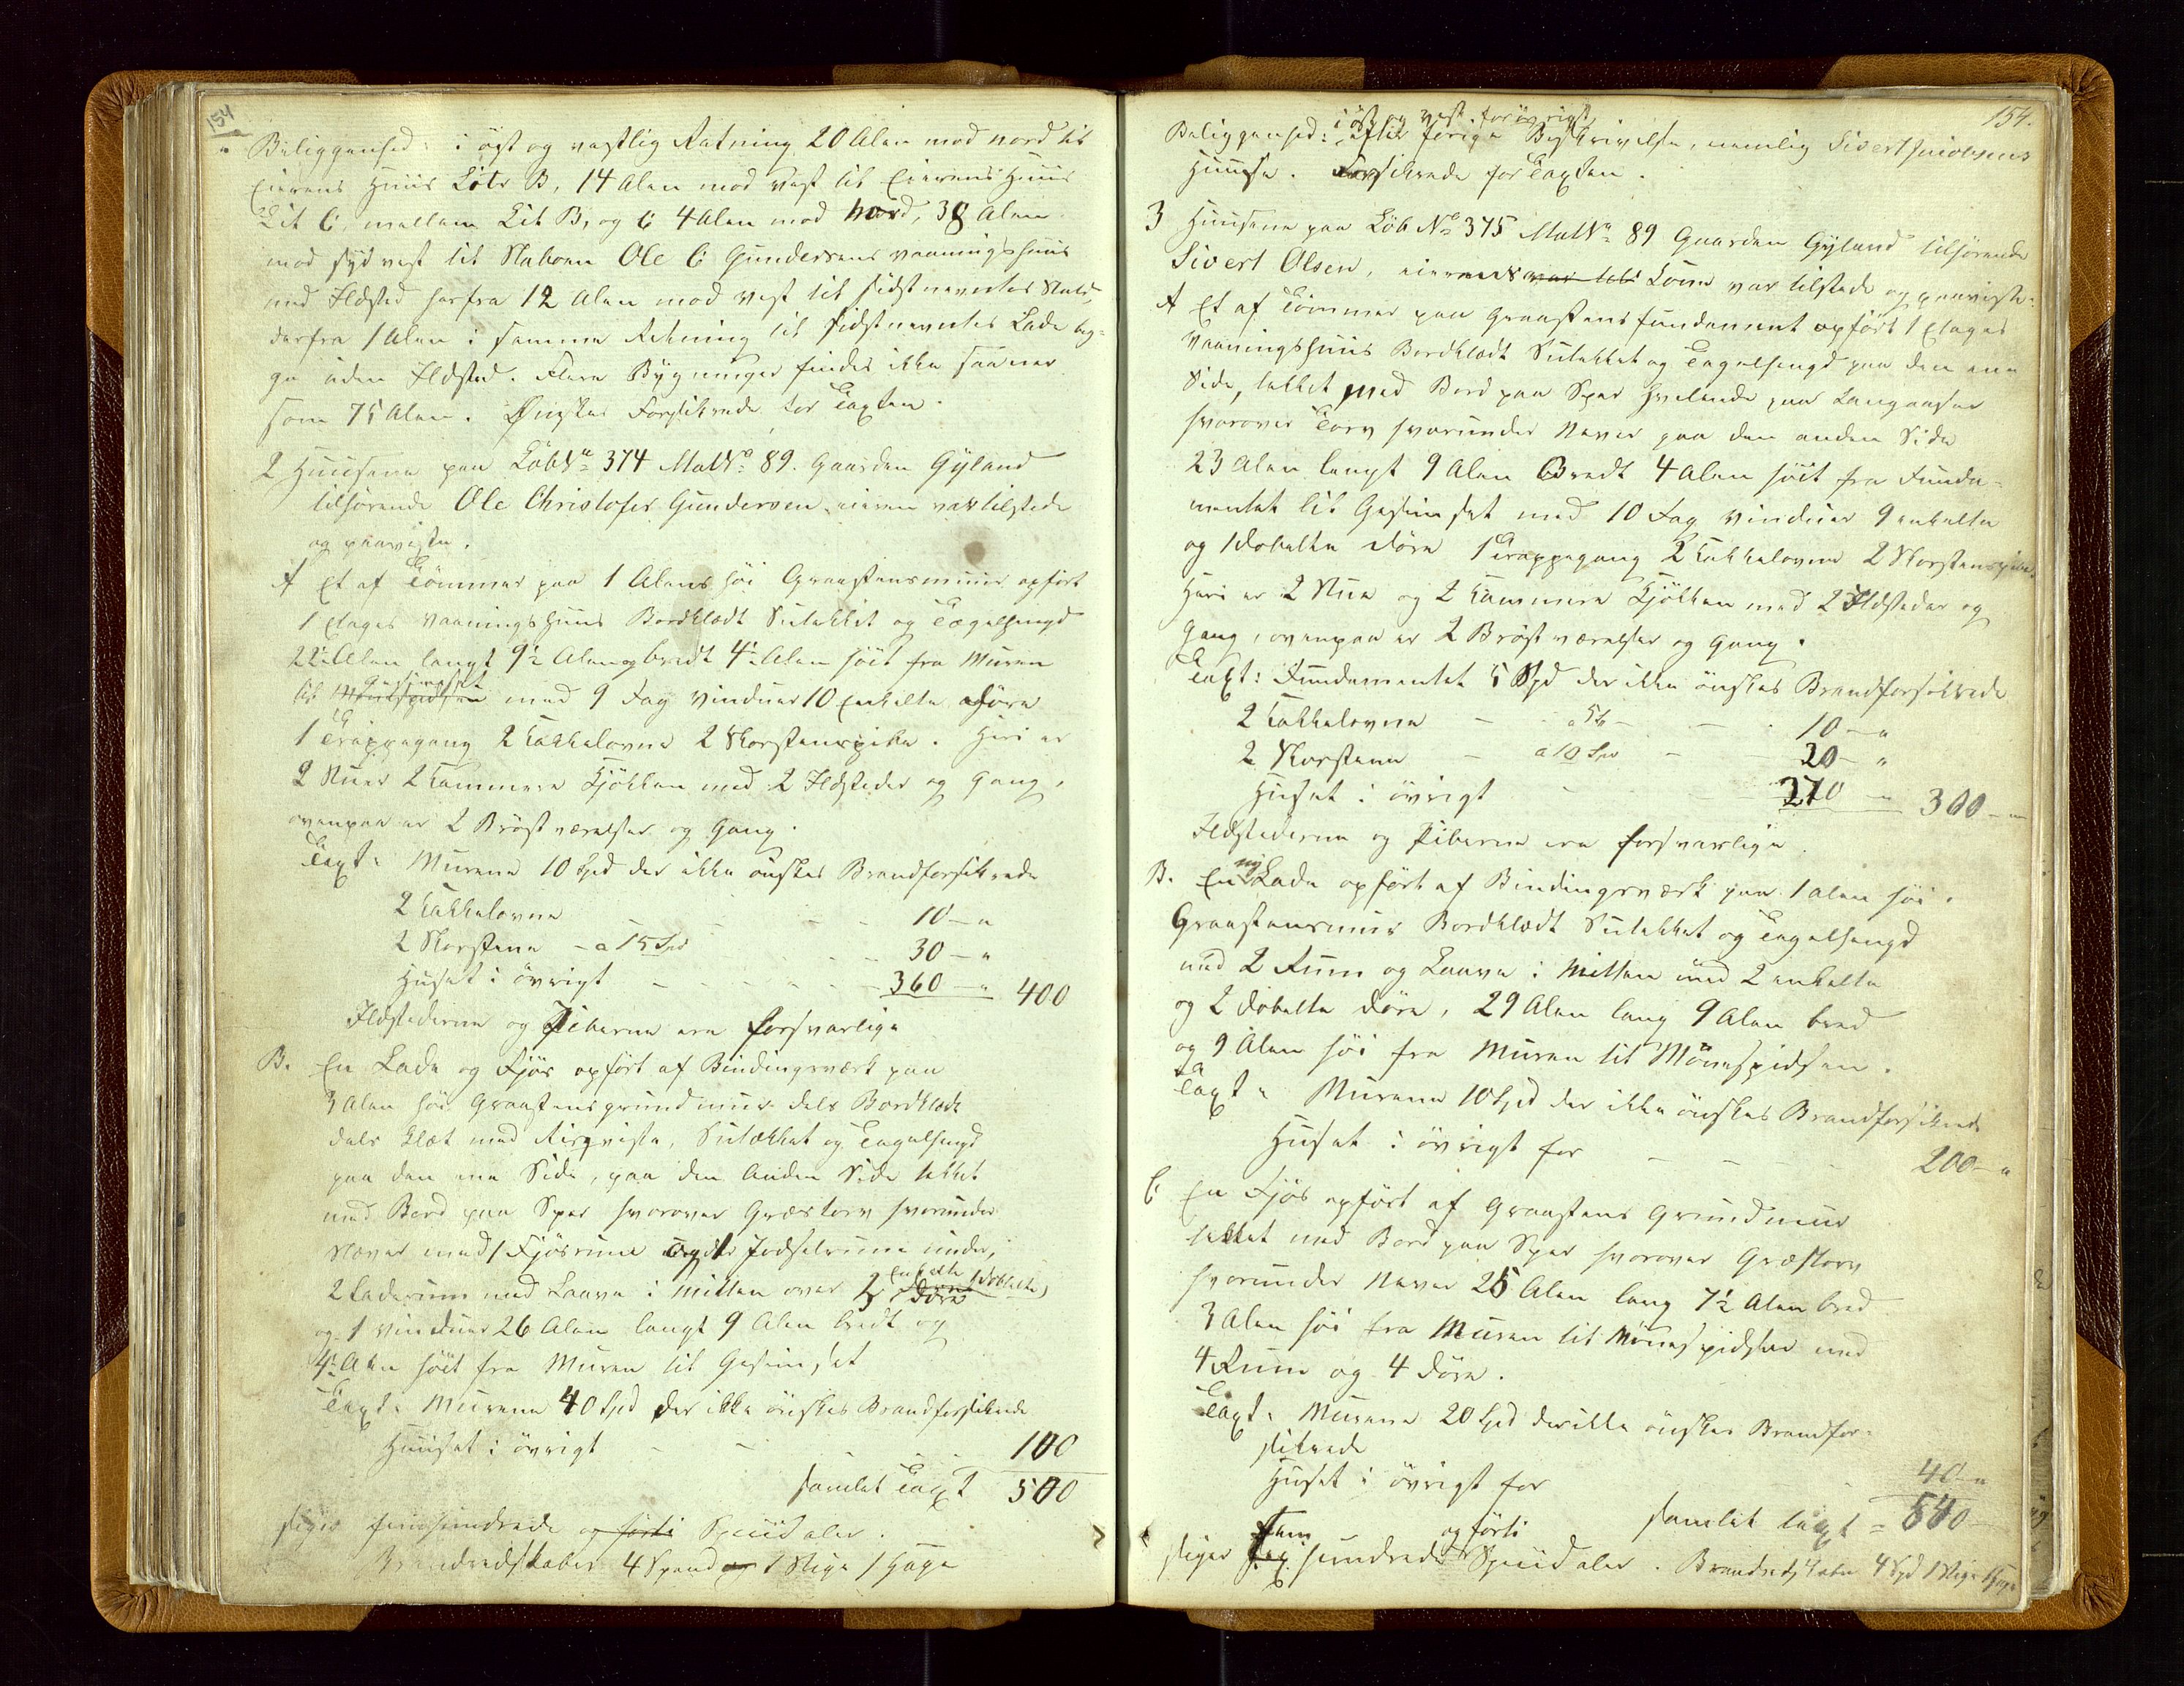 154
Beliggenhed: i öst og vestlig Retning 20 Alen mod nord til
Eierens Huus Litr B, 14 Alen mod vest til Eierens Huus
Lit C, mellem Lit B, og C 4 Alen mod nord, 38 Alen
mod sydvest til Naboen Ole C Gundersens vaaningshuus
med Ildsted herfra 12 Alen mod vest til sidstnevntes
derfra 1 Alen i samme Retning til sidstnevntes Lade beg-
ge uden Ildsted. Flere Bygninger findes ikke saa nær
som 75 Alen. Önskes Forsikrede for Taxten.
2 Huusene paa LöbNo 374 MatNo 89. Gaarden Gyland
tilhørende Ole Christofer Gundersen, eieren var tilstede
og paaviste.
A Et af Tömmer paa 1 Alens höi Graastensmuur opfört
1 Etages Vaaningshuus Bordklædt Sutækket og Tægelhengd
22½ Alen langt 9½ Alen og bredt 4½ Alen höit fra Muren
til Mönespidsen Gesimset med 9 Fag vinduer 10 Enkelte döre
1 Trappegang 2 Kakkelovne 2 Skorstenspiber. Heri er
2 Stuer 2 Kammere Kjökken med 2 Ildsteder og Gang,
ovenpaa er 2 Bröstværelser og Gang.
Taxt: Murene 10 Spd der ikke önskes Brandforsikrede
2 Kakkelovne - - - 10 - "
2 Skorstene - a 15 Spd - - - 30 - "
Huset i övrigt - - - 360 - " 400
Ildstederne og Piberne ere forsvarlige
B. En Lade og Fjös opfört af Bindingsværk paa
3 Alen höi Graastensgrundmur dels Bordklædt
dels klæt med Risqviste, Sutækket og Tagelhengd
paa den ene Side, paa den Anden Side tækket
med Bord paa Spær hvorover Græstorv hvorunder
Næver med 1 Fjösrum og 1 Jodselrum under,
2 Laderum med Laave i Mitten over 3 Enkelte 1 dobbelte döre
og 1 vinduer 26 Alen langt 9 Alen bredt og
4½ Alen höit fra Muren til Gesimset
Taxt: Murene 40 Spd der ikke önskes Brandforsikrede
Huuset i övrigt - - 100
samlet Taxt 500
siger femhundrede og förti Speciedaler.
Brandredskaber 4 Spand og 1 Stige 1 Hage
154.
i öst og vest. forövrigt
Beliggenhed: efter forige Beskrivelse, nemlig Sivert Jacobsens
Huuse. Forsikrede for Taxten.
3 Huusene paa Löb No 375 MatNo 89 Gaarden Gyland tilhörende
Sivert Olsen, eierens var til Kone var tilstede og paaviste:
A Et af Tömmer paa Graastensfundament opfört 1 Etages
Vaaningshuus Bordklædt Sutækket og Tagelhengd paa den ene
Side, tækket med Bord paa Spær hvilende paa Langaaser
hvorover Torv hvorunder Næver paa den anden Side
23 Alen langt 9 Alen Bredt 4 Alen höit fra Funda-
mentet til Gesimset med 10 Fag vinduer 9 enkelte
og 1 dobelte döre 1 Trappegang 2 Kakkelovne 2 Skorstenspiber
Heri er 2 Stue og 2 Kammere Kjökken med 2 Ildsteder og
Gang, ovenpaa er 2 Bröstværelser og Gang.
Taxt: Fundamentet 5 Spd der ikke önskes Brandforsikrede
2 Kakkelovne - a 5 - - 10 - "
2 Skorstene - a 10 Spd - 20 - "
Huset i övrigt - - 270 - " 300 - "
Ildstederne og Piberne ere forsvarlige.
B. En ny Lade opfört af Bindingsværk paa 1 alen höi
Graastensmur Bordklædt Sutækket og Tagelhengd
med 2 Rum og Laave i Mitten med 2 enkelte
og 2 dobelte döre, 29 Alen lang 9 Alen bred
og 9 Alen höi fra Muren til Mönespidsen.
Taxt: Murene 10 Spd der ikke önskes Brandforsikrede
Huset i övrigt for - - - 200 - "
C En Fjös opfört af Graastens Grundmuur
tækket med Bord paa Spær hvorover Græstorv
hvorunder Næver 25 Alen lang 7½ Alen bred
3 Alen höi fra Muren til Mönespidsen med
4 Rum og 4 döre.
Taxt: Murene 20 Spd der ikke önskes Brandfor-
sikrede
Huset i övrigt for 40 - "
samlet taxt = 540
siger sex fem hundrede og förti Speciedaler. Brandredskaber 4 Spd 1 Stige 1 Hage